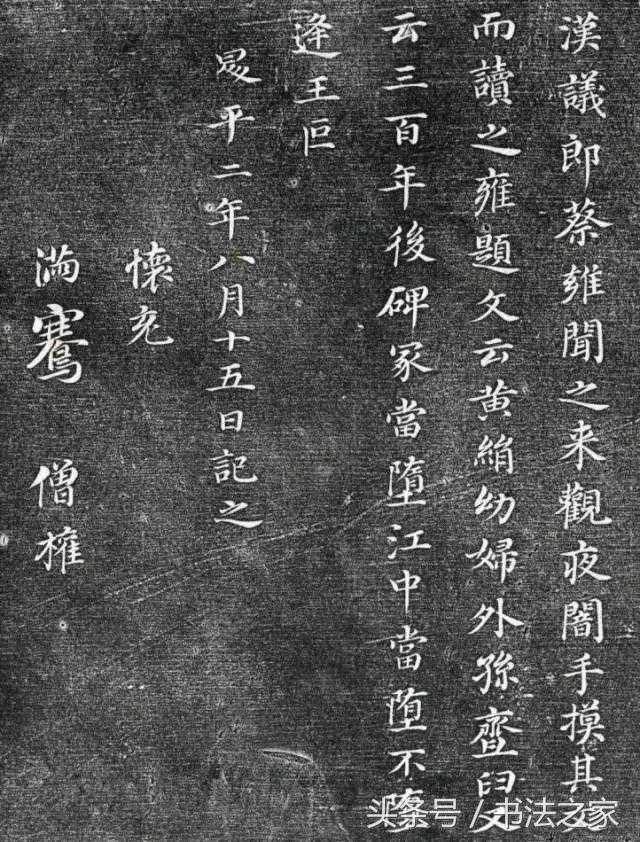 漢議郎蔡雍聞之来觀夜闇手摸其文
而讀之雍題文云黄絹幼婦外孫齏臼又
云三百年後碑冢當墮江中當墮不墮
逢王叵
昇平二年八月十五日記之
懷充
滿騫 僧權
头条号／书法之家